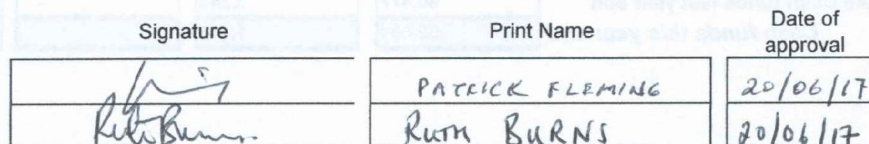 Signature Print Name Date of approval
PATRICK FLEMING 20/06/17
Ruth Burns RUTH BURNS 20/06/17